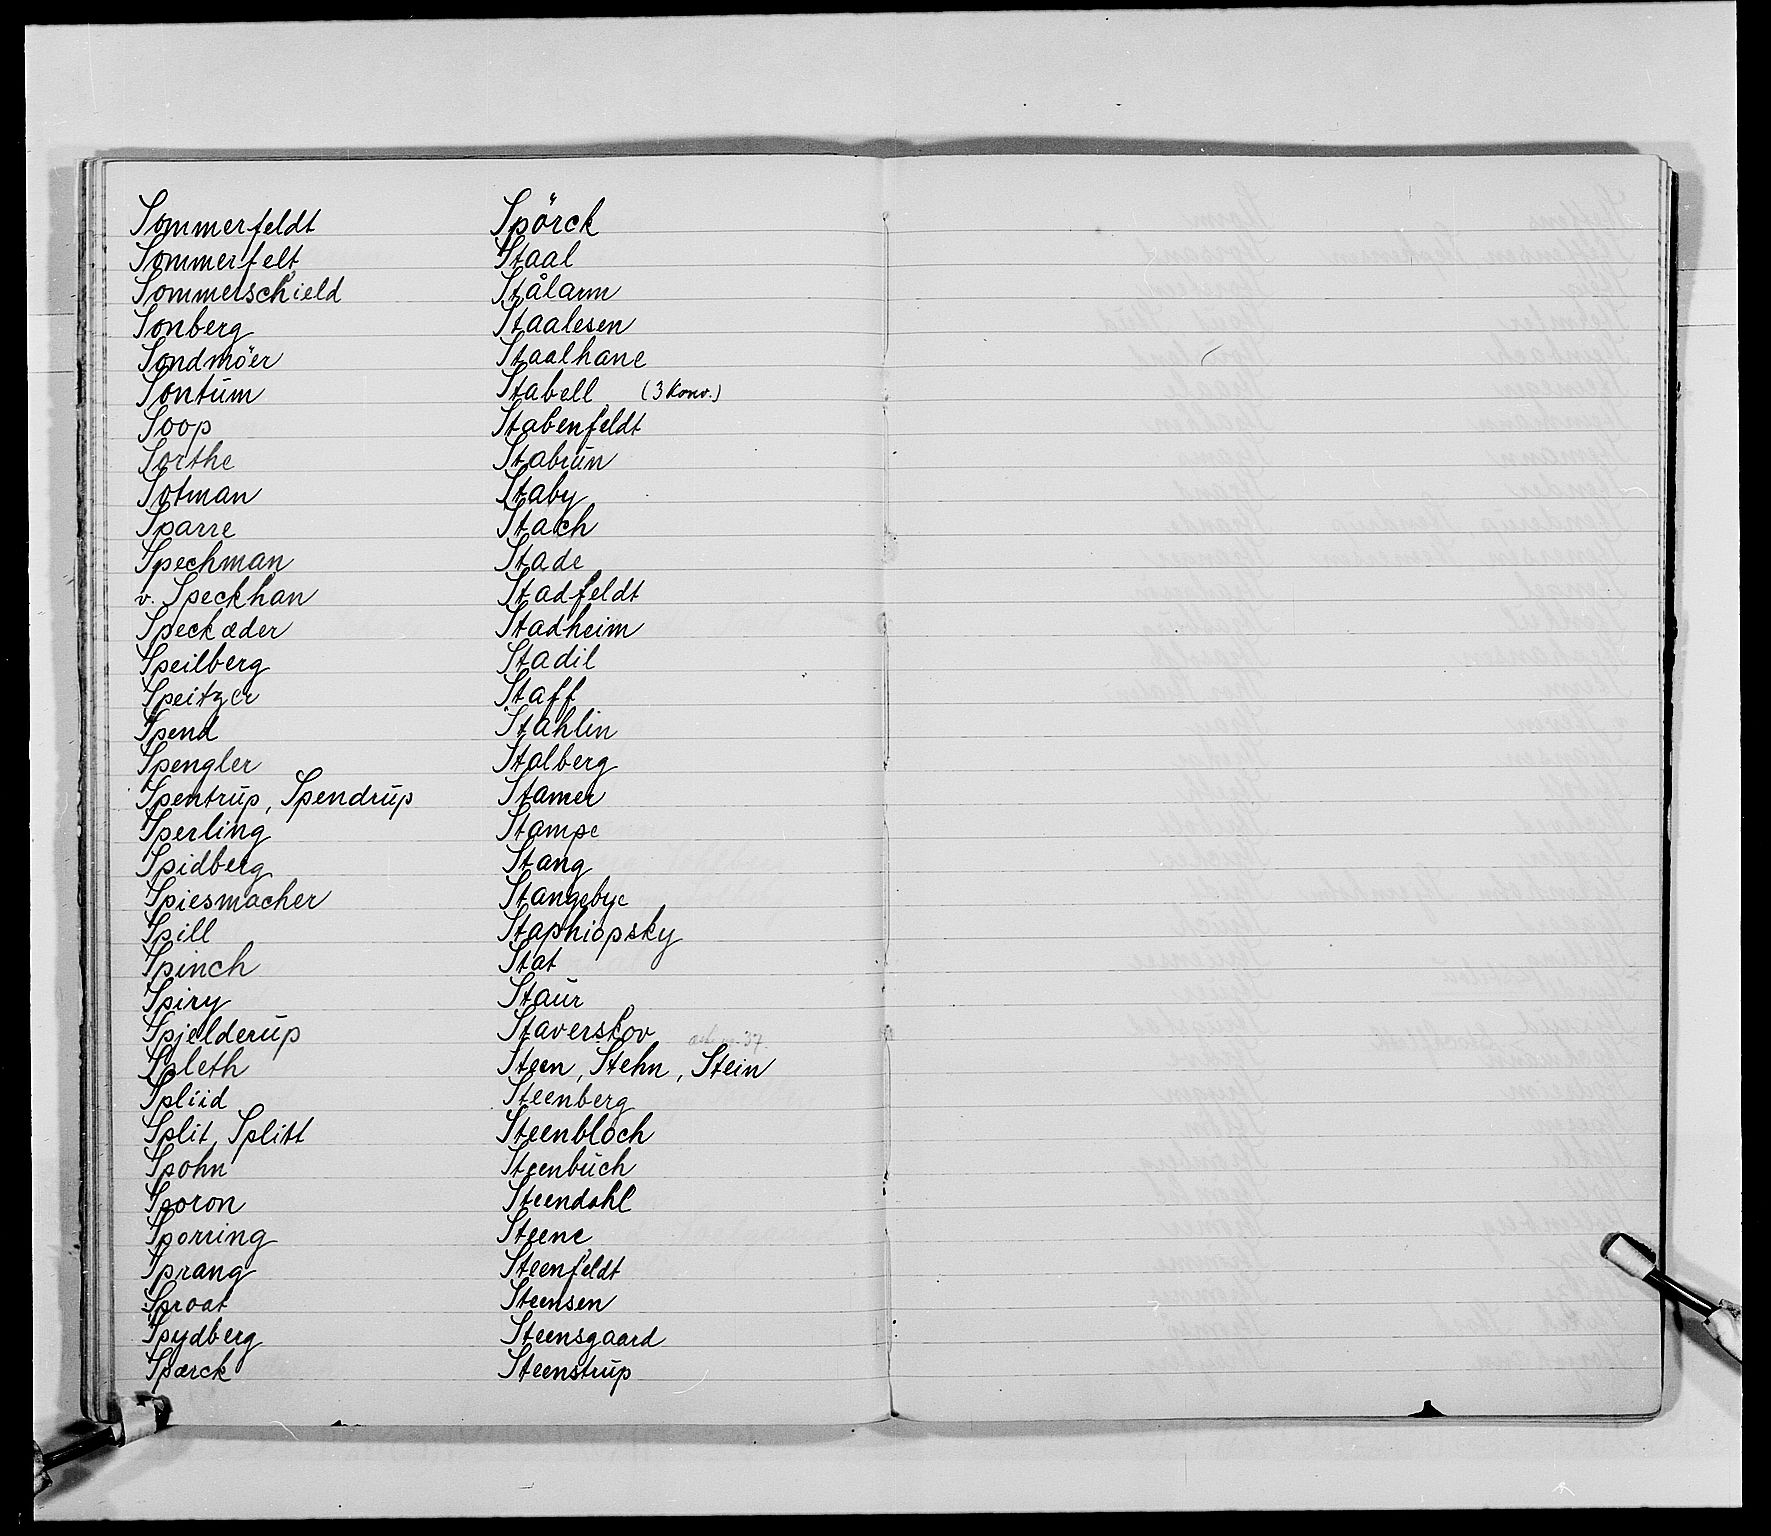 Sommerfeldt
Sommerfelt
Sommerschield
Sonberg
Sondmöer
Sontŭm
Soop
Sorthe
Sotman
Sparre
Spechman
v. Speckhan
Speckæder
Speilberg
Speitzer
Spend
Spengler
Spentrŭp, Spendrŭp
Sperling
Spidberg
Spiesmacher
Spill
Spinch
Spiry
Spjelderŭp
Spleth
Spliid
Split, Splitt
Spohn
Sporon
Sporring
Sprang
Sproat
Spydberg
Spærck
Spörck
Staal
Stålarm
Staalesen
Staalhane
Stabell (3 konv.)
Stabenfeldt
Stabrŭn
Staby
Stach
Stade
Stadfeldt
Stadheim
Stadil
Staff
Stahlin
Stalberg
Stamer
Stampe
Stang
Stangebye
Staphiopsky
Stat
Staŭr
Staverskov
Steen, Stehn, Stein
Steenberg
Steenbloch
Steenbŭch
Steendahl
Steene
Steenfeldt
Steensen
Steensgaard
Steenstrŭp